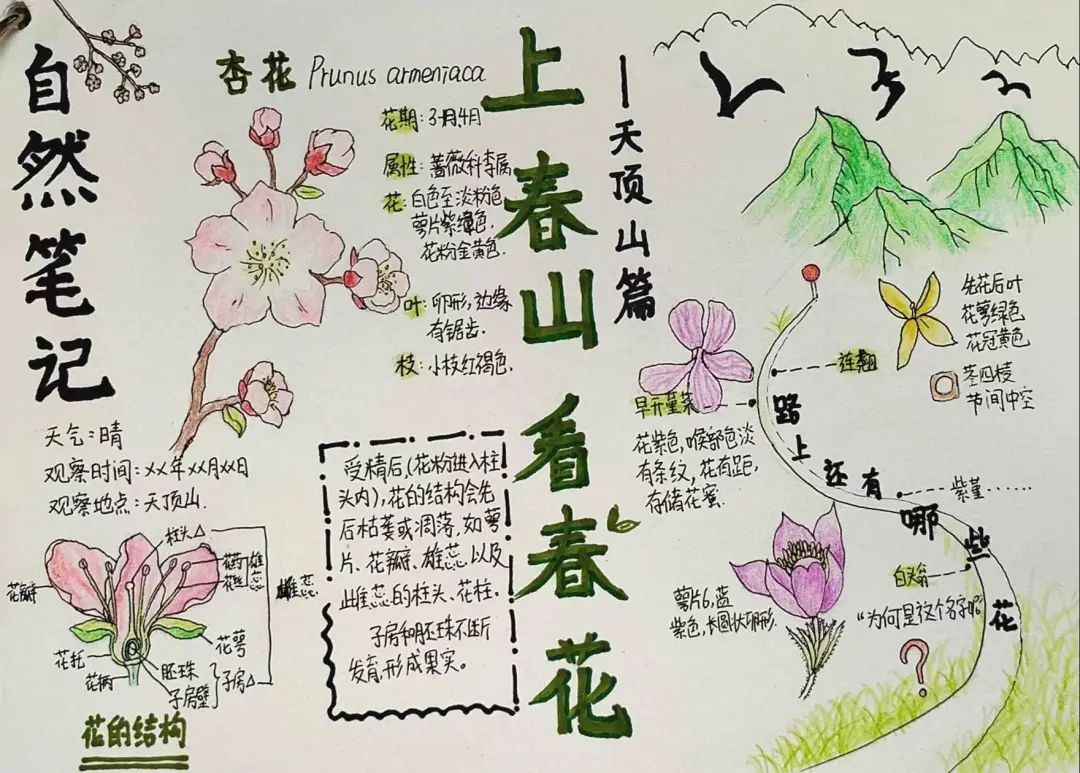 自然笔记
天气:晴
观察时间:xx年xx月xx日
观察地点:天顶山.
杏花 Prunus armeniaca
花期:3月,4月
属性:蔷薇科李属
花:白色至淡粉色
萼片紫绿色,
花粉金黄色.
叶:卵形,边缘
有锯齿.
枝:小枝红褐色.
柱头△
花药
花丝
雄蕊
雌蕊
花瓣
花托
花柄
花萼
胚珠
子房壁
子房△
花的结构
受精后,(花粉进入柱
头内),花的结构会先
后枯萎或凋落,如萼
片、花瓣、雄蕊、以及
雌蕊的柱头、花柱。
子房和胚珠不断
发育,形成果实。
上春山 看春花
一天顶山篇
路上还有哪些花
连翘
先花后叶
花萼绿色
花冠黄色
茎四棱
节间中空
早开堇菜
花紫色,喉部色淡
有条纹,花有距,
存储花蜜.
紫堇……
白头翁
萼片6,蓝
紫色,长圆状卵形.
“为何是这个名字呢”
?